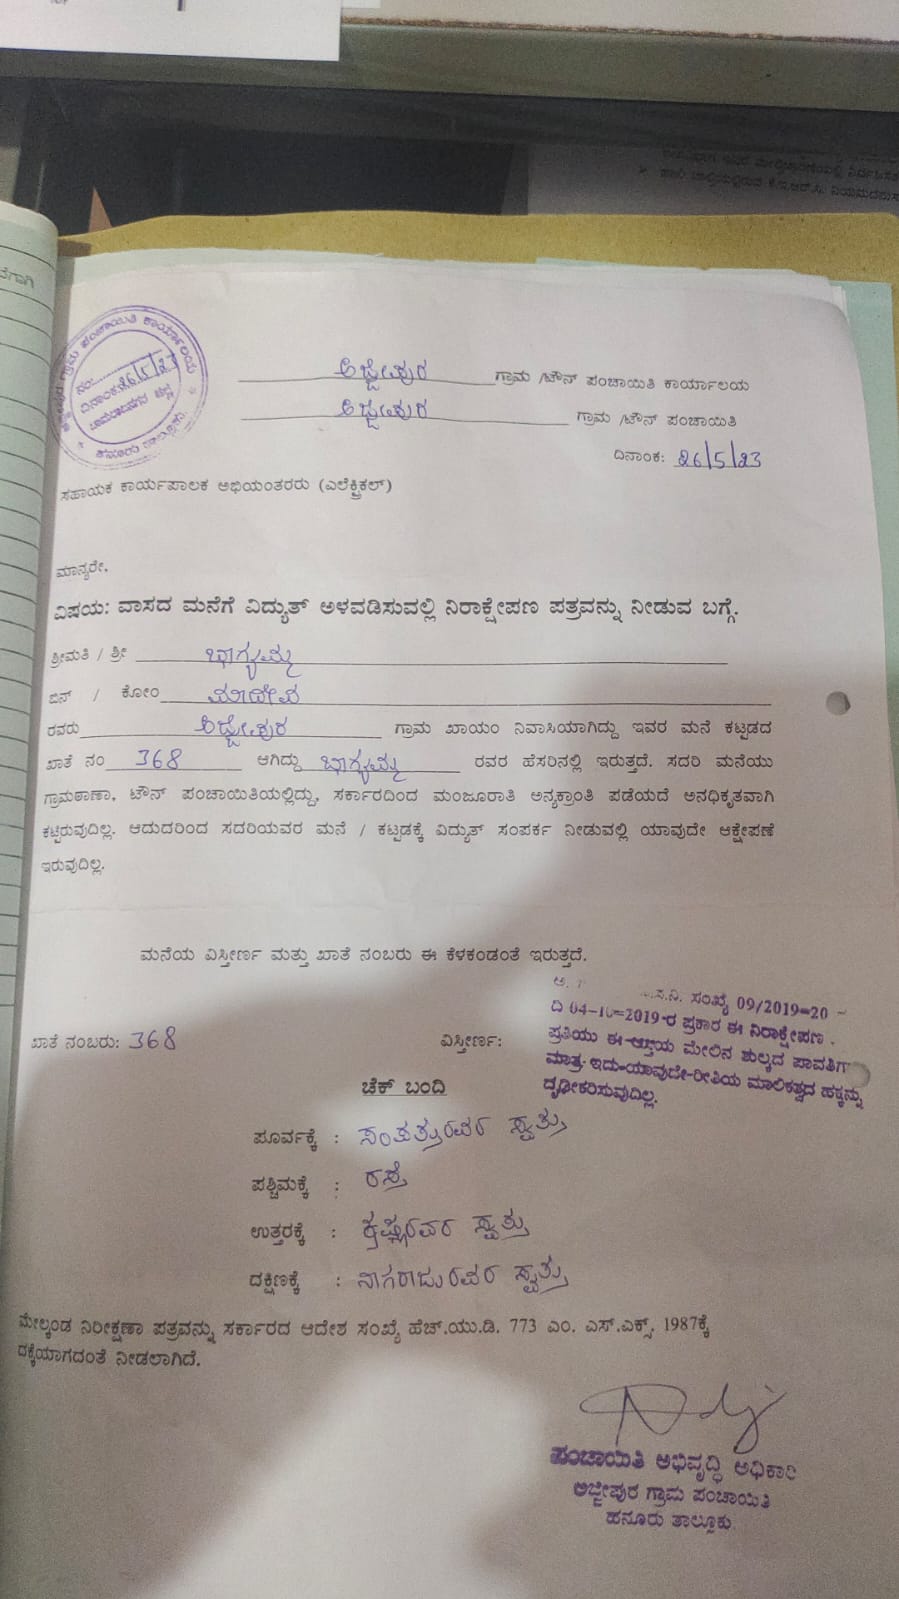 ಗ್ರಾಮ ಪಂಚಾಯಿತಿ ಕಾರ್ಯಾಲಯ
ನಂ:
ದಿನಾಂಕ: 26/5/23
ಚಾಮರಾಜನಗರ ಜಿಲ್ಲೆ
ಹನೂರು ತಾಲ್ಲೂಕು
ಅಜ್ಜೀಪುರ ಗ್ರಾಮ /ಟೌನ್ ಪಂಚಾಯಿತಿ ಕಾರ್ಯಾಲಯ
ಅಜ್ಜೀಪುರ ಗ್ರಾಮ /ಟೌನ್ ಪಂಚಾಯಿತಿ
ದಿನಾಂಕ: 26/5/23
ಸಹಾಯಕ ಕಾರ್ಯಪಾಲಕ ಅಭಿಯಂತರರು (ಎಲೆಕ್ಟ್ರಿಕಲ್)
ಮಾನ್ಯರೇ,
ವಿಷಯ: ವಾಸದ ಮನೆಗೆ ವಿದ್ಯುತ್ ಅಳವಡಿಸುವಲ್ಲಿ ನಿರಾಕ್ಷೇಪಣ ಪತ್ರವನ್ನು ನೀಡುವ ಬಗ್ಗೆ.
ಶ್ರೀಮತಿ / ಶ್ರೀ ಭಾಗ್ಯಮ್ಮ
ಬಿನ್ / ಕೋಂ ಮಾದೇವ
ರವರು ಅಜ್ಜೀಪುರ ಗ್ರಾಮ ಖಾಯಂ ನಿವಾಸಿಯಾಗಿದ್ದು ಇವರ ಮನೆ ಕಟ್ಟಡದ
ಖಾತೆ ನಂ 368 ಆಗಿದ್ದು ಭಾಗ್ಯಮ್ಮ ರವರ ಹೆಸರಿನಲ್ಲಿ ಇರುತ್ತದೆ. ಸದರಿ ಮನೆಯು
ಗ್ರಾಮಠಾಣಾ, ಟೌನ್ ಪಂಚಾಯಿತಿಯಲ್ಲಿದ್ದು, ಸರ್ಕಾರದಿಂದ ಮಂಜೂರಾತಿ ಅನ್ಯಕ್ರಾಂತಿ ಪಡೆಯದೆ ಅನಧಿಕೃತವಾಗಿ
ಕಟ್ಟಿರುವುದಿಲ್ಲ. ಆದುದರಿಂದ ಸದರಿಯವರ ಮನೆ / ಕಟ್ಟಡಕ್ಕೆ ವಿದ್ಯುತ್ ಸಂಪರ್ಕ ನೀಡುವಲ್ಲಿ ಯಾವುದೇ ಆಕ್ಷೇಪಣೆ
ಇರುವುದಿಲ್ಲ.
ಮನೆಯ ವಿಸ್ತೀರ್ಣ ಮತ್ತು ಖಾತೆ ನಂಬರು ಈ ಕೆಳಕಂಡಂತೆ ಇರುತ್ತದೆ.
ಸಂಖ್ಯೆ 09/2019=20
ದಿ 04-10=2019-ರ ಪ್ರಕಾರ ಈ ನಿರಾಕ್ಷೇಪಣ
ಪ್ರತಿಯು ಈ ಆಸ್ತಿಯ ಮೇಲಿನ ಶುಲ್ಕದ ಪಾವತಿಗೆ
ಮಾತ್ರ ಇದು-ಯಾವುದೇ-ರೀತಿಯ ಮಾಲಿಕತ್ವದ ಹಕ್ಕನ್ನು
ದೃಢೀಕರಿಸುವುದಿಲ್ಲ.
ಖಾತೆ ನಂಬರು: 368 ವಿಸ್ತೀರ್ಣ:
ಚೆಕ್ ಬಂದಿ
ಪೂರ್ವಕ್ಕೆ : ರವರ ಸ್ವತ್ತು
ಪಶ್ಚಿಮಕ್ಕೆ : ರಸ್ತೆ
ಉತ್ತರಕ್ಕೆ : ಕೃಷ್ಣರವರ ಸ್ವತ್ತು
ದಕ್ಷಿಣಕ್ಕೆ : ನಾಗರಾಜುರವರ ಸ್ವತ್ತು
ಮೇಲ್ಕಂಡ ನಿರೀಕ್ಷಣಾ ಪತ್ರವನ್ನು ಸರ್ಕಾರದ ಆದೇಶ ಸಂಖ್ಯೆ ಹೆಚ್.ಯು.ಡಿ. 773 ಎಂ. ಎಸ್.ಎಕ್ಸ್. 1987ಕ್ಕೆ
ದಕ್ಕೆಯಾಗದಂತೆ ನೀಡಲಾಗಿದೆ.
ಪಂಚಾಯಿತಿ ಅಭಿವೃದ್ಧಿ ಅಧಿಕಾರಿ
ಅಜ್ಜೀಪುರ ಗ್ರಾಮ ಪಂಚಾಯಿತಿ
ಹನೂರು ತಾಲ್ಲೂಕು.